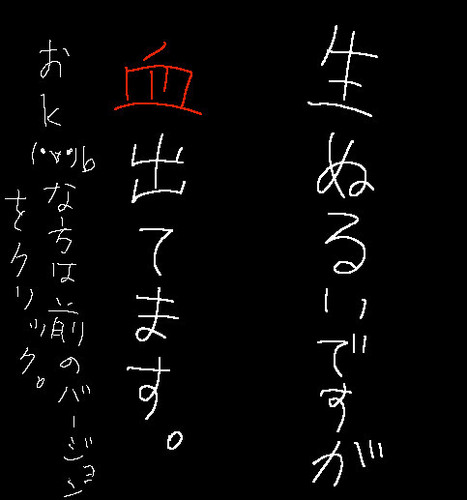 生ぬるいですが
血出てます。
おk(・∀・)bな方は前のバージョン
をクリック。